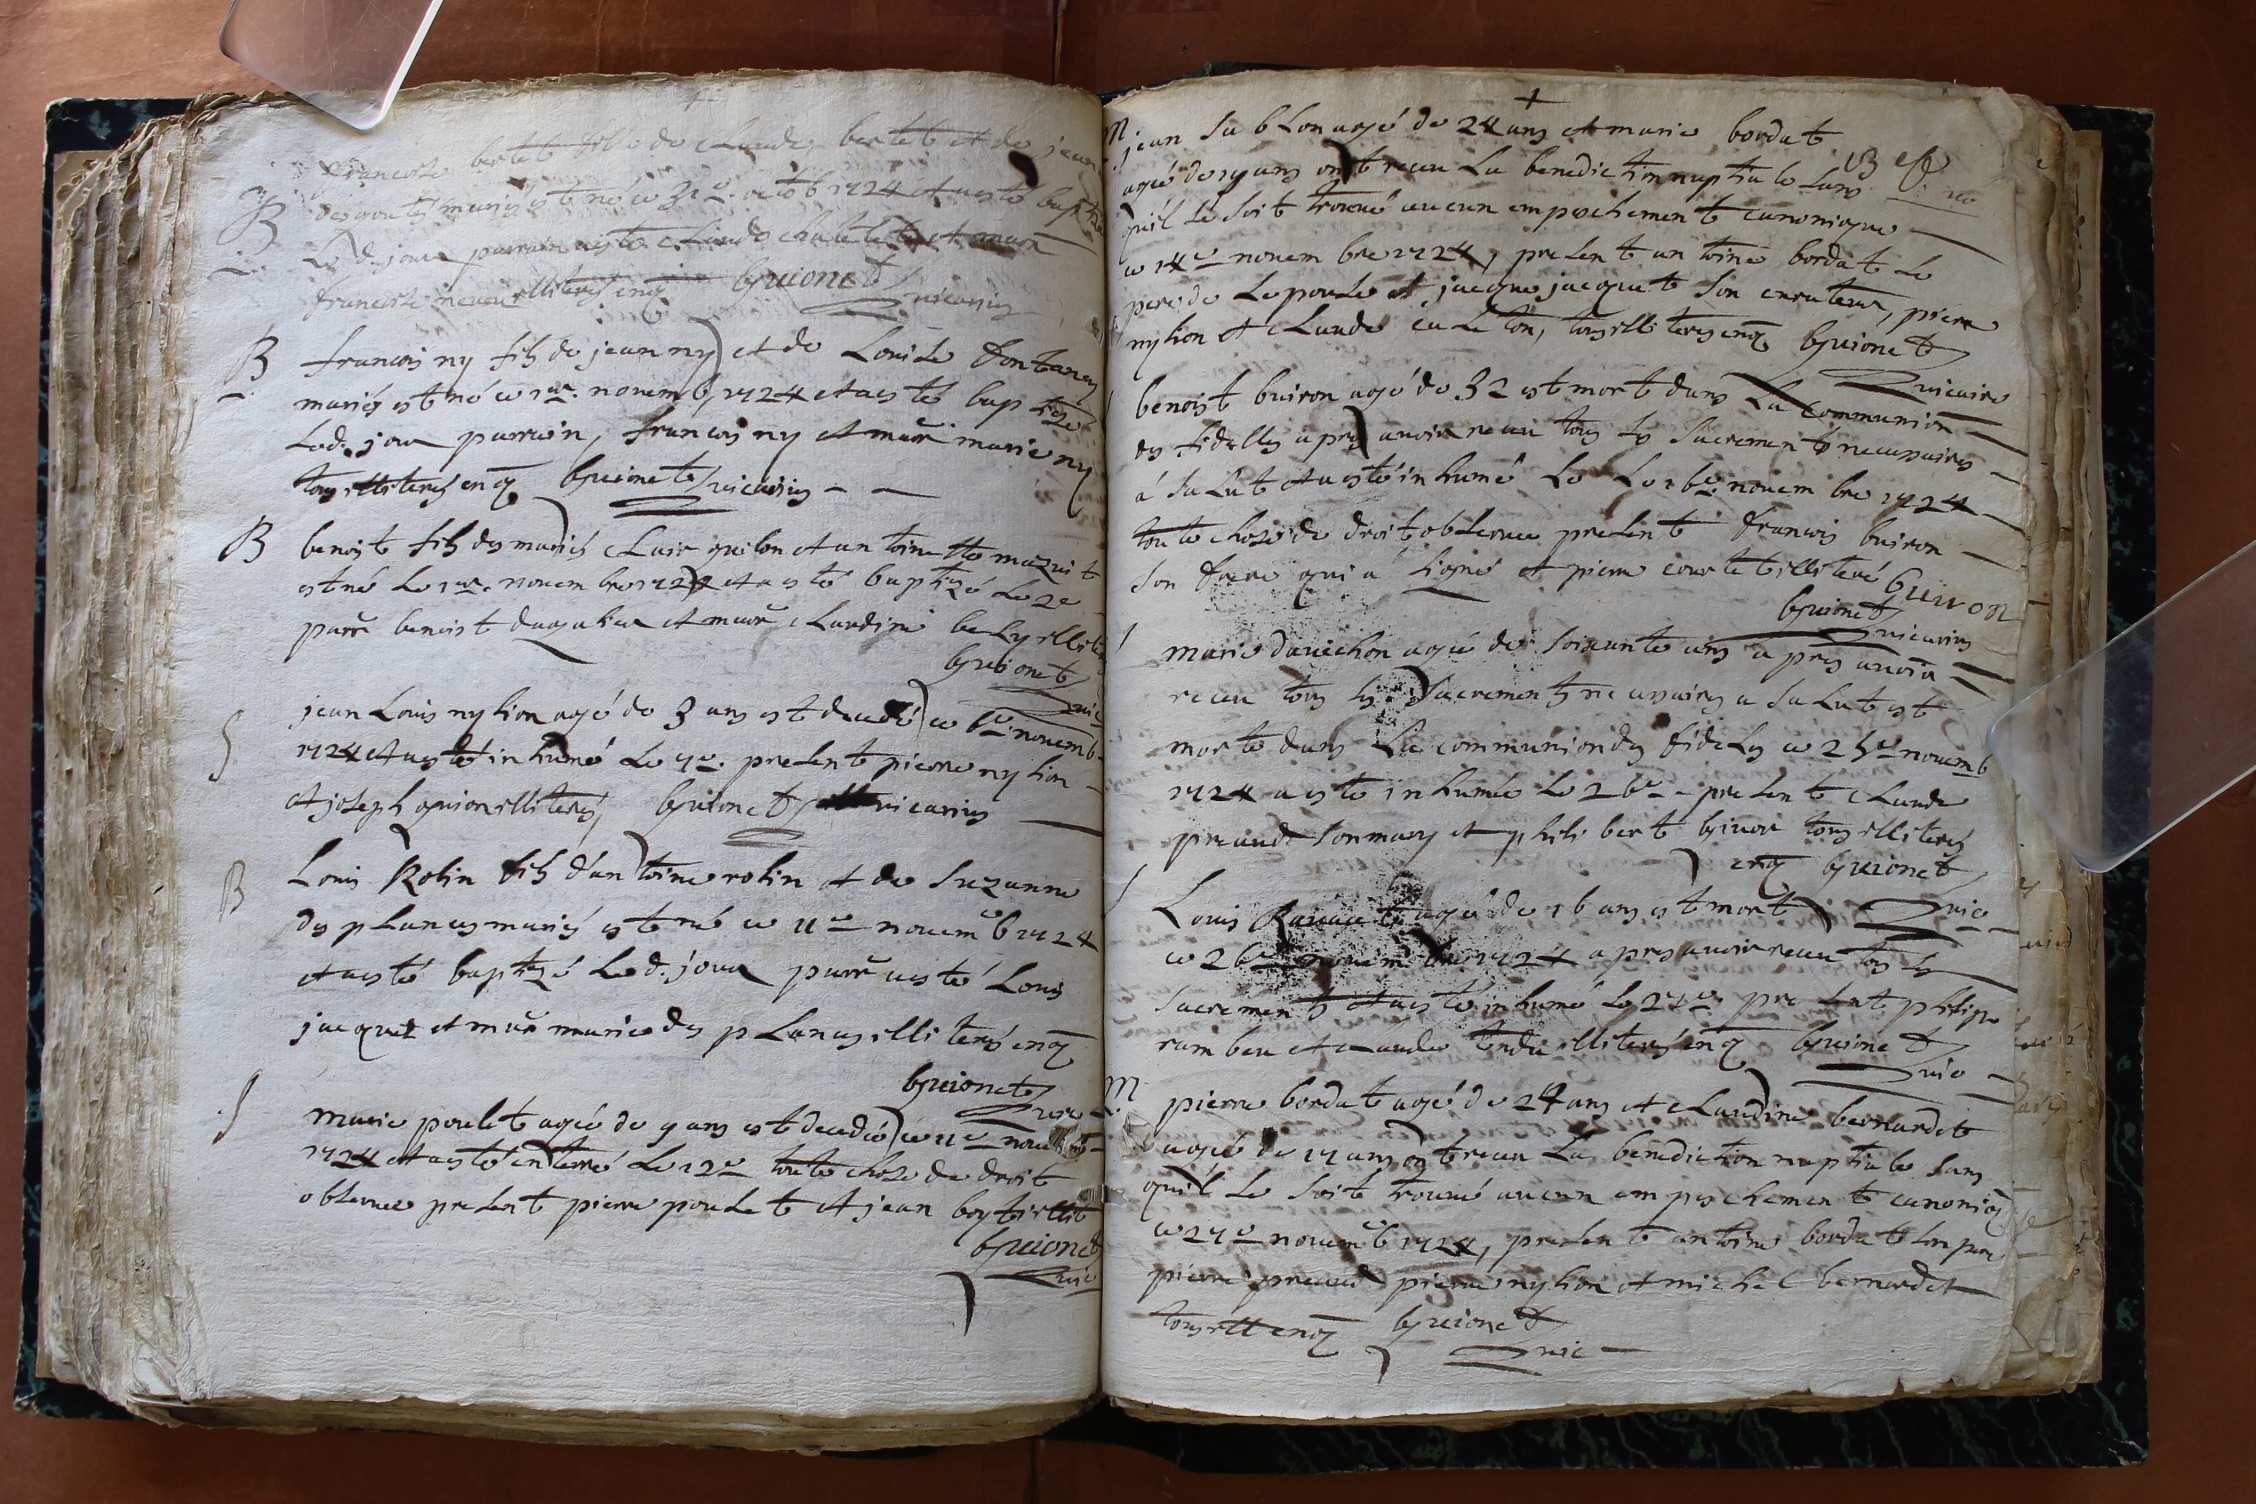 +
francoise bertet fille de Claude bertet et de jean
B
mariés est né ce 31e. octob 1724 et a esté baptisé
Le d. jour parrain a esté Claude chatelet et marr
francoise illiterés enq bguionet
vicarius
B
francois ny fils de jean ny et de Louise fontanes
mariés est né ce 1er. novemb, 1724 et a esté baptizé
Led. jour parrain, francois ny et marr marie ny
tous illiterés enq bguionet vicarius
B
benoist fils des mariés Clair guilon et antoinette mazuit
est né Le 1er. novembre 1724 et a esté baptizé Le 2e
parr benoist et marr Claudine illite
bguionet
vic
S
jean Louis nylion agé de 3 ans est decedé ce 6e novemb
1724 et a esté inhumé Le 7e. present pierre nylion
et joseph guion illiterés, bguionet vicarius
B
Louis Robin fils d'antoine robin et de Suzanne
des plances mariés est né ce 11e novemb 1724
et a esté baptizé Led. jour parr a esté Louis
jacquet et marr marie des plances illiterés enq
bguionet
vic
S
marie poulet agée de 9 ans est decedée ce 11e novembr
1724 et a esté enterré Le 12e toute chose de droit
observée present pierre poulet et jean illit
bguionet
vic
+
M
jean Sablon agé de 24 ans et marie bordat
agée de 19 ans ont receu La benediction nuptiale sans
qu'il se soit trouvé aucun empechement canonique
ce 14e novembre 1724, present antoine bordat Le
pere de Lepouse et jacque jacquet son curateur, pierre
nylion et Claude tous illiterés enq bguionet
vicaire
benoist buiron agé de 32 est mort dans La Communion
des fidelles apres avoir receu tous Les sacrements necessaires
á salut et a esté inhumé Le 16e novembre 1724
toute chose de droit observee present francois buiron
son frere qui a signé et pierre courtet illiteré buiron
bguionet
vicarius
marie davichon agée de soixante ans apres avoir
receu tous Les sacrements necessaires a salut est
morte dans La communion des fideles ce 25e novemb
1724 a esté inhumée Le 26e present Claude
preaud son mary et philibert tous illiterés
enq bguionet
vic
Louis agé de 16 ans est mort
ce 26e novembre 1724 apres avoir receu tous Les
sacrements et a esté inhumé Le 27e. present philipe
rambeu et Claude illiterés enq bguionet
vic
M
pierre bordat agé de 24 ans et Claudine bernardet
agée de 17 ans ont receu La benediction nuptiale sans
qu'il se soit trouvé aucun empeschement canoniq
ce 27e novemb 1724, present antoine bordat son pere
pierre preaud pierre nylion et michel bernardet
tous ill enq bguionet
vic